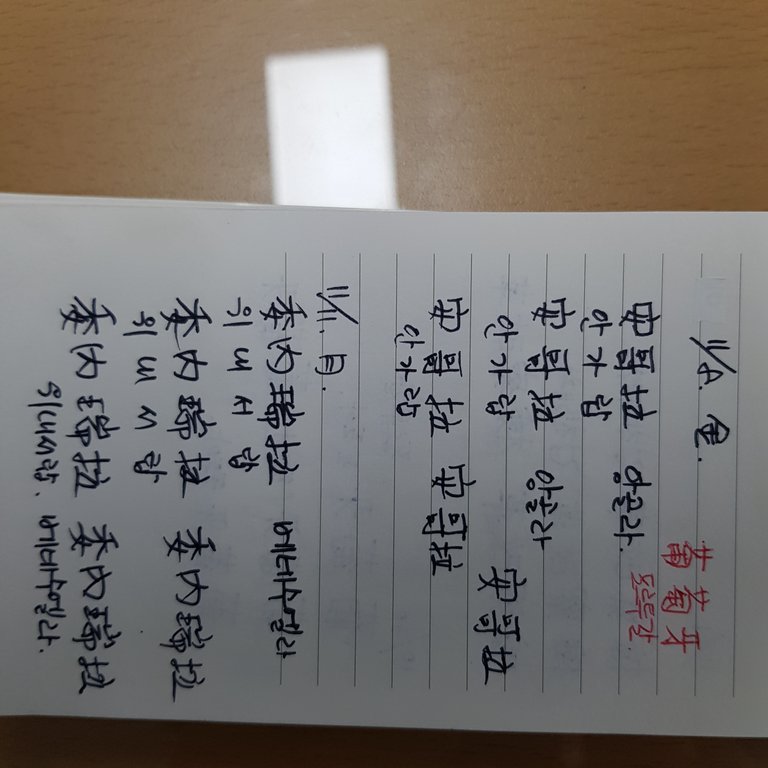 11/8. 金.
葡萄牙
安哥拉 앙골라. 포르투갈
안 가 랍
安哥拉 앙골라
안 가 랍 安哥拉
安哥拉 安哥拉
안 가 랍
11/11. 月.
委內瑞拉 베네수엘라
위 내 서 랍
委內瑞拉 委內瑞拉
위 내 서 랍
委內瑞拉 委內瑞拉
위내서랍. 베네수엘라.